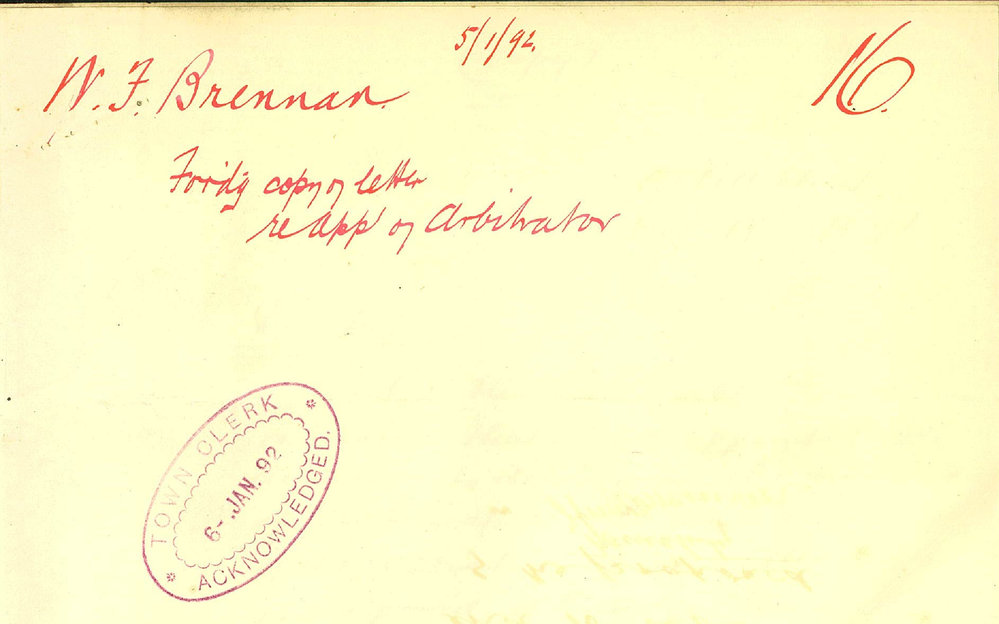 5/1/92.
W. F. Brennan.
16.
Fordg copy of letter
re App of Arbitrator
TOWN CLERK
6- JAN. 92
ACKNOWLEDGED.